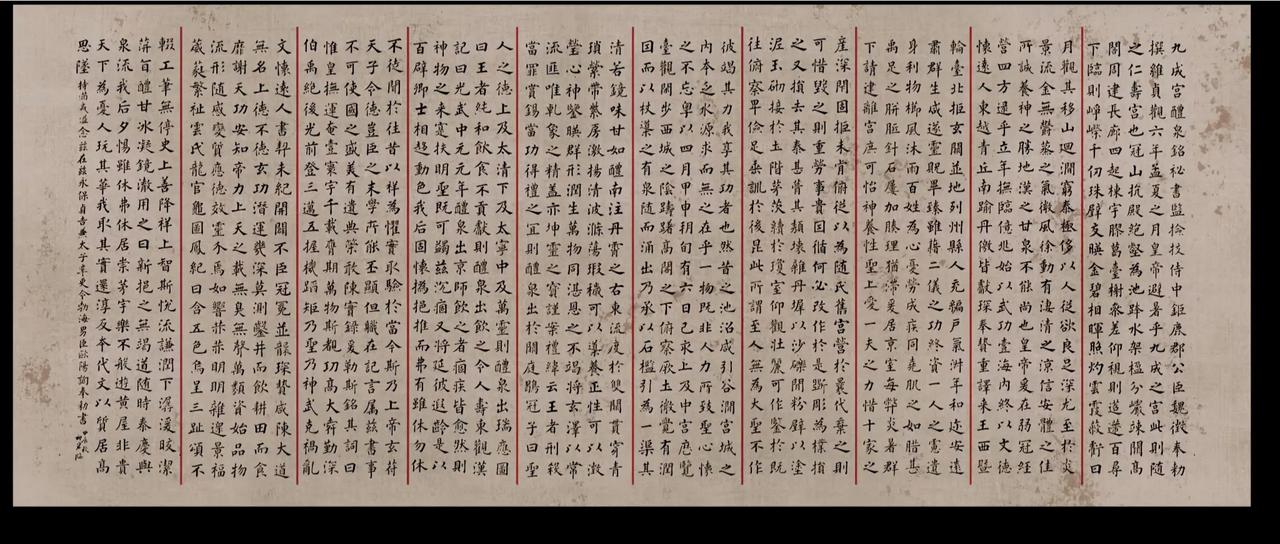 九成宮醴泉銘秘書監撿挍侍中鉅鹿郡公臣魏徵奉勅
撰維貞觀六年孟夏之月皇帝避暑乎九成之宮此則隨
之仁壽宮也冠山抗殿絕壑為池跨水架楹分巖竦闕高
閣周建長廊四起棟宇膠葛臺榭參差仰視則迢遰百尋
下臨則崢嶸千仞珠璧交暎金碧相暉照灼雲霞蔽虧日
月觀其移山迴澗窮泰極侈以人從欲良足深尤至於炎
景流金無鬱蒸之氣微風徐動有淒清之涼信安體之佳
所誠養神之勝地漢之甘泉不能尚也皇帝爰在弱冠經
營四方逮乎立年撫臨億兆始以武功壹海內終以文德
懷遠人東越青丘南踰丹徼皆獻琛奉贄重譯來王西暨
輪臺北拒玄闕並地列州縣人充編戶氣淑年和迩安遠
肅群生咸遂靈貺畢臻雖藉二儀之功終資一人之慮遺
身利物櫛風沐雨百姓為心憂勞成疾同堯肌之如腊甚
禹足之胼胝針石屢加腠理猶滯爰居京室每弊炎暑群
下請建離宮庶可怡神養性聖上愛一夫之力惜十家之
產深閉固拒未肯俯從以為隨氏舊宮營於曩代棄之則
可惜毀之則重勞事貴因循何必改作於是斲彫為樸損
之又損去其泰甚葺其頹壞雜丹墀以沙礫間粉壁以塗
泥玉砌接於土階茅茨續於瓊室仰觀壯麗可作鑒於既
往俯察卑儉足垂訓於後昆此所謂至人無為大聖不作
彼竭其力我享其功者也然昔之池沼咸引谷澗宮城之
內本乏水源求而無之在乎一物既非人力所致聖心懷
之不忘粵以四月甲申朔旬有六日己亥上及中宮歷覽
臺觀閑步西城之陰躊躇高閣之下俯察厥土微覺有潤
因而以杖導之有泉隨而涌出乃承以石檻引為一渠其
清若鏡味甘如醴南注丹霄之右東流度於雙闕貫穿青
瑣縈帶紫房激揚清波滌蕩瑕穢可以導養正性可以澂
瑩心神鑒暎群形潤生萬物同湛恩之不竭將玄澤以常
流匪唯乾象之精蓋亦坤靈之寶謹案禮緯云王者刑殺
當罪賞錫當功得禮之宜則醴泉出於闕庭鶡冠子曰聖
人之德上及太清下及太寧中及萬靈則醴泉出瑞應圖
曰王者純和飲食不貢獻則醴泉出飲之令人壽東觀漢
記曰光武中元元年醴泉出京師飲之者痼疾皆愈然則
神物之來寔扶明聖既可蠲茲沉痼又將延彼遐齡是以
百辟卿士相趨動色我后固懷撝挹推而弗有雖休勿休
不徒聞於往昔以祥為懼實取驗於當今斯乃上帝玄苻
天子令德豈臣之末學所能丕顯但職在記言属茲書事
不可使國之盛美有遺典策敢陳實錄爰勒斯銘其詞曰
惟皇撫運奄壹寰宇千載膺期萬物斯覩功高大舜勤深
伯禹絕後光前登三邁五握機蹈矩乃聖乃神武克禍亂
文懷遠人書契未紀開闢不臣冠冕並襲琛贄咸陳大道
無名上德不德玄功潛運幾深莫測鑿井而飲耕田而食
靡謝天功安知帝力上天之載無臭無聲萬類資始品物
流形隨感變質應德效靈介焉如響赫赫明明雜遝景福
葳蕤繁祉雲氏龍官龜圖鳳紀日含五色烏呈三趾頌不
輟工筆無停史上善降祥上智斯悅流謙潤下潺湲皎潔
蓱旨醴甘冰凝鏡澈用之日新挹之無竭道隨時泰慶與
泉流我后夕惕雖休弗休居崇茅宇樂不般遊黃屋非貴
天下為憂人玩其華我取其實還淳反本代文以質居高
思墜持滿戒溢念茲在茲永保貞吉兼太子率更令勃海男臣歐陽詢奉勅書